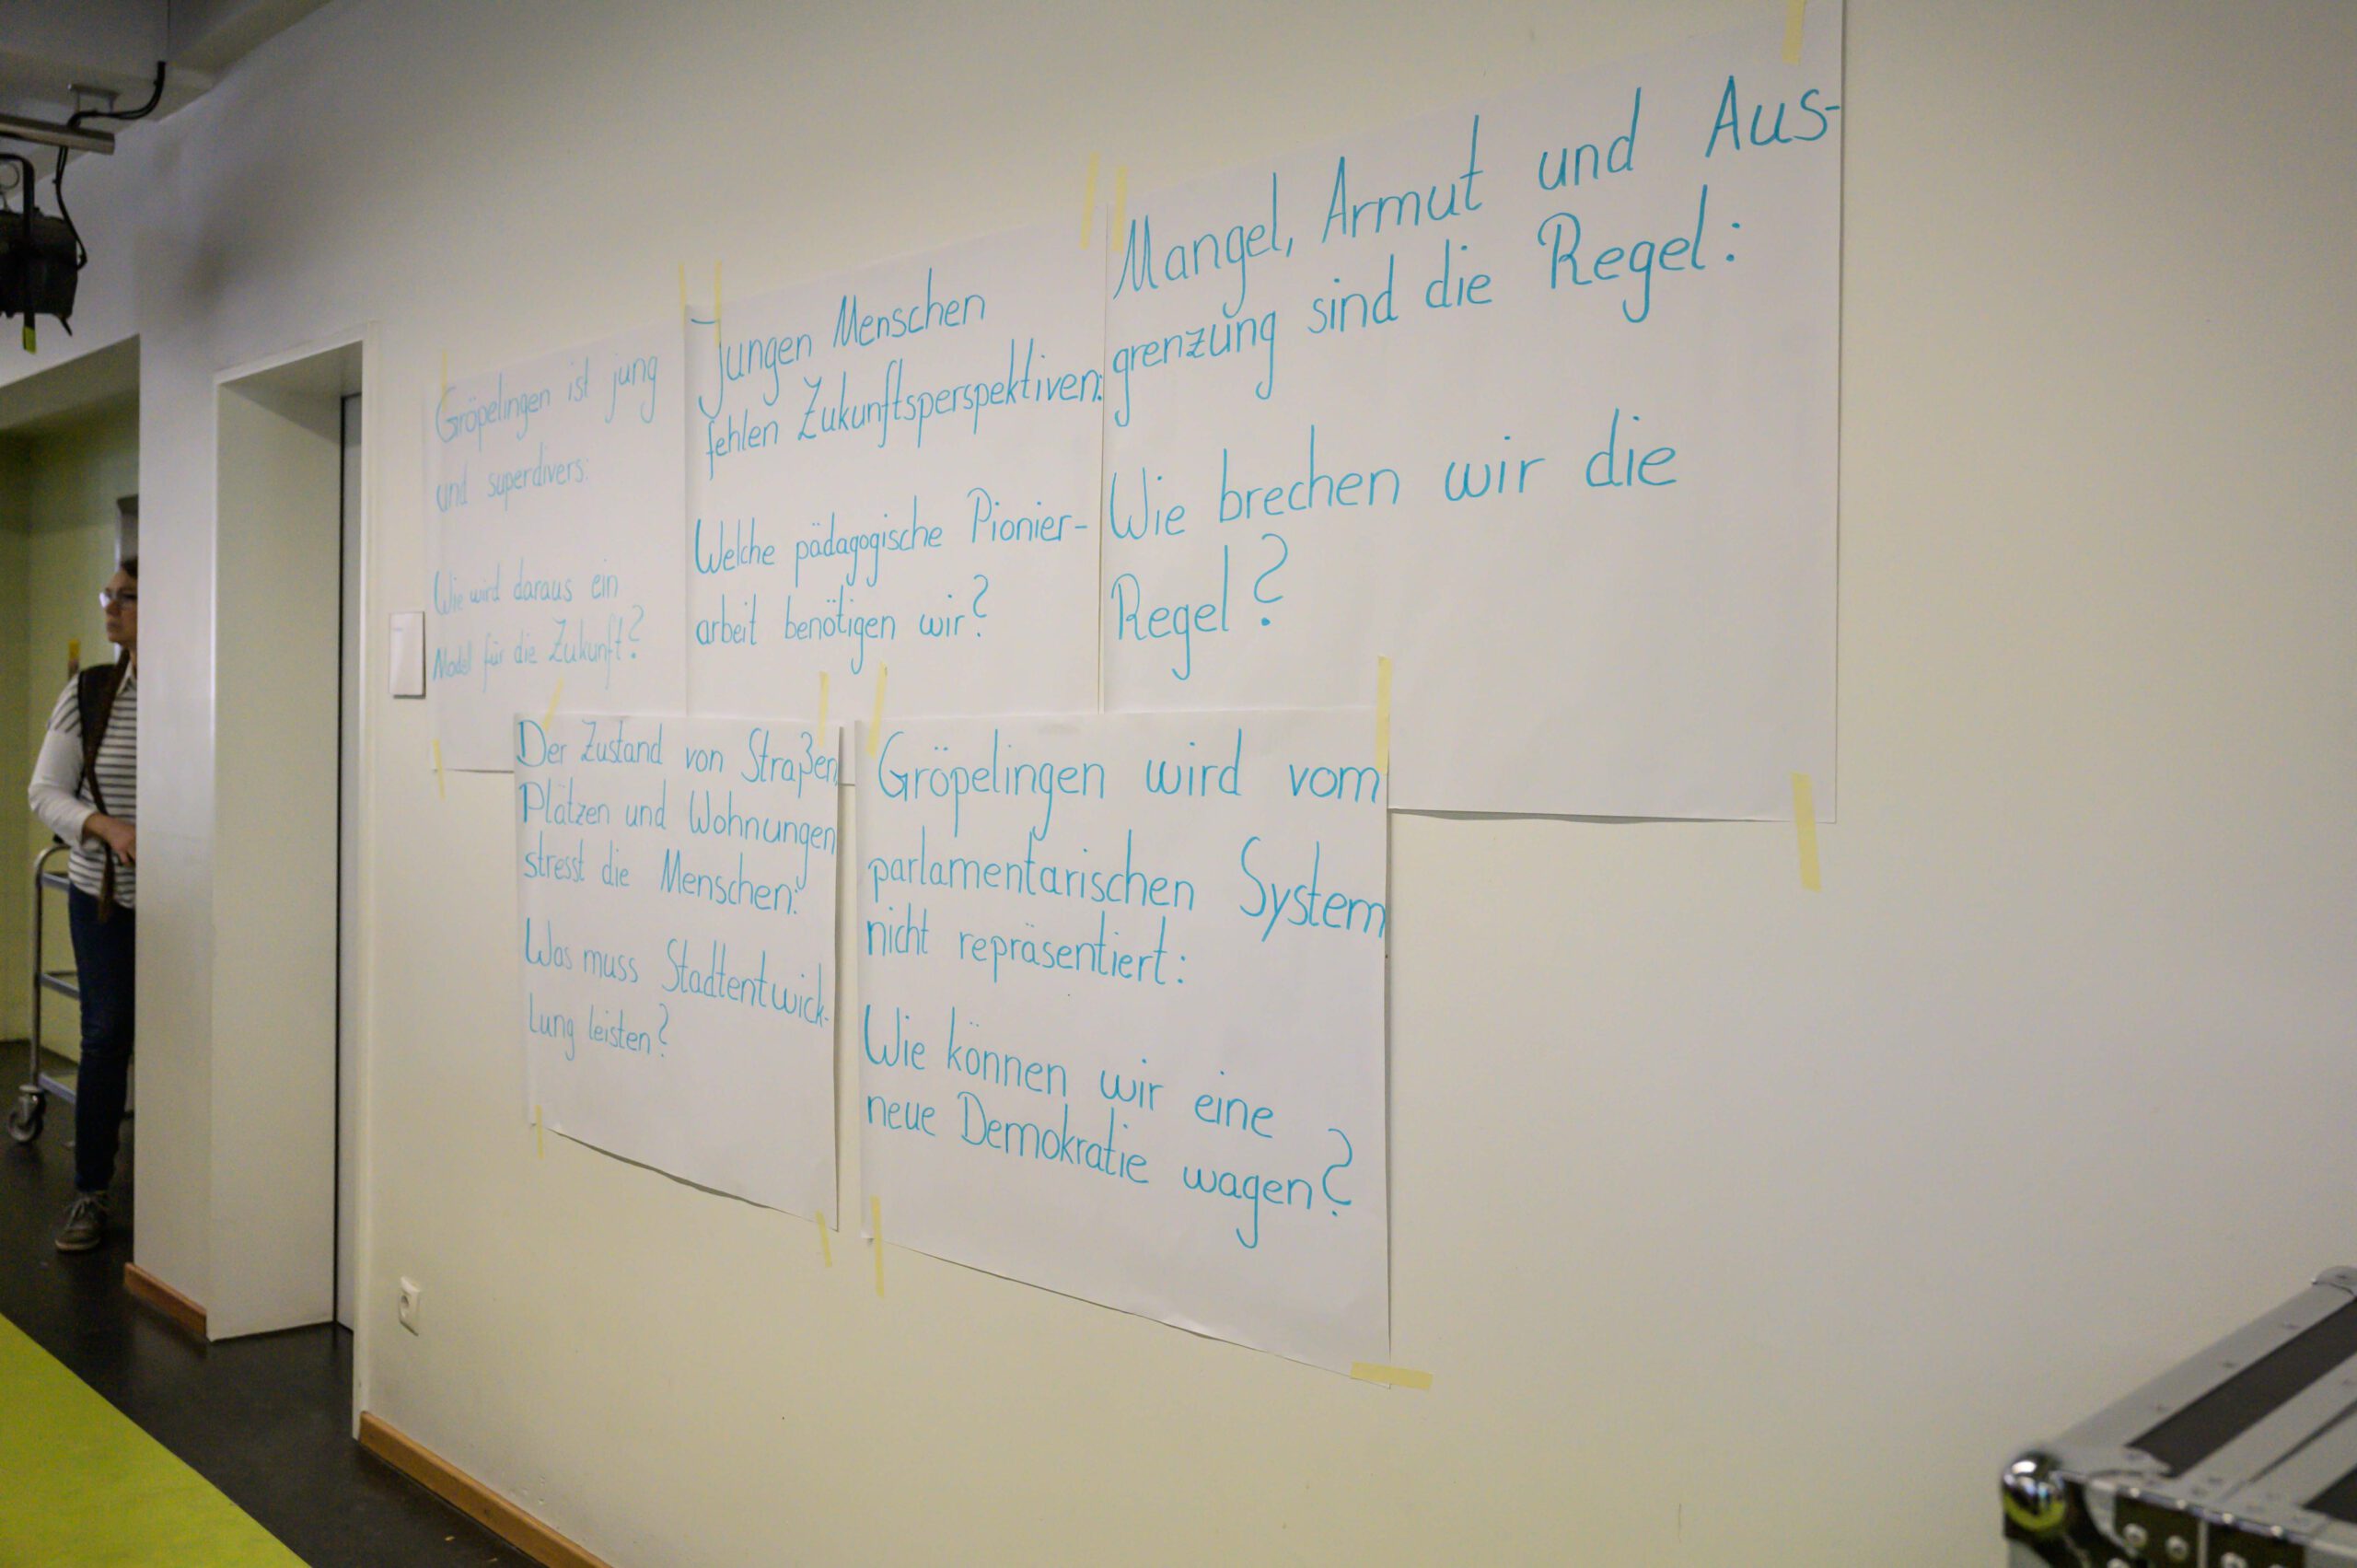 Gröpelingen ist jung
und superdivers:
Wie wird daraus ein
Model für die Zukunft?
Jungen Menschen
fehlen Zukunftsperspektiven:
Welche pädagogische Pionier-
arbeit benötigen wir?
Mangel, Armut und Aus-
grenzung sind die Regel:
Wie brechen wir die
Regel?
Der Zustand von Straßen,
Plätzen und Wohnungen
stresst die Menschen:
Was muss Stadtentwick-
lung leisten?
Gröpelingen wird vom
parlamentarischen System
nicht repräsentiert:
Wie können wir eine
neue Demokratie wagen?